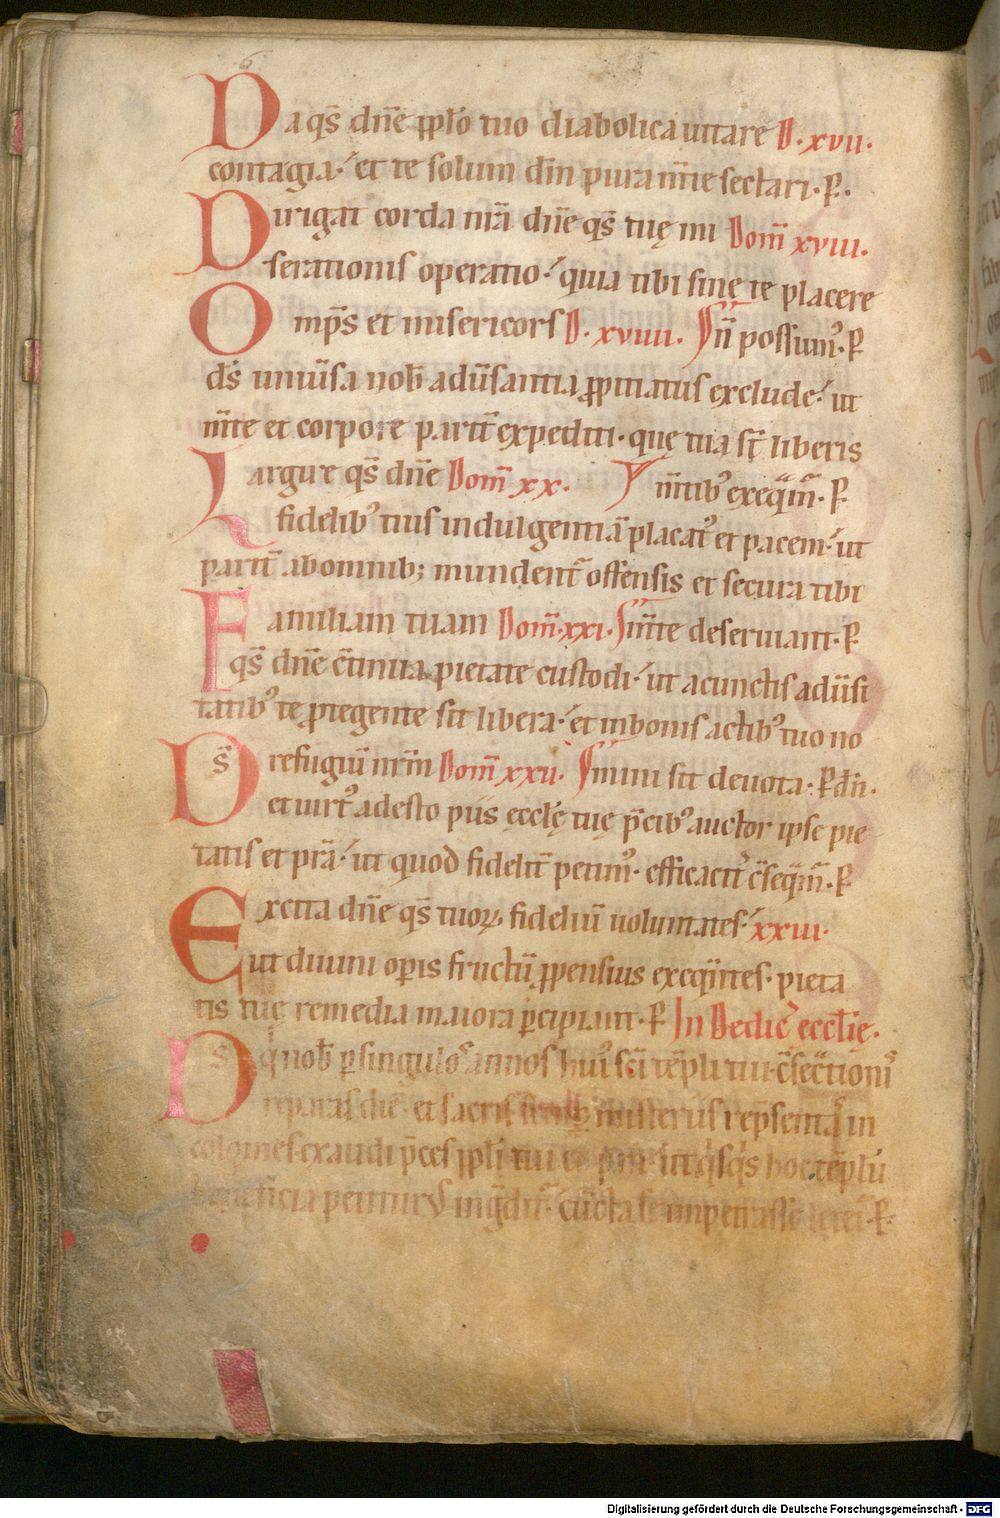 Da qs̄ dn̄e ppło tuo diabolica uitare D. xvii.
contagia. et te solum dm̄ pura m̄te sectari. P̄.
Dirigat corda nr̄a dn̄e qs̄ tuę mi Dom̄ xviii.
serationis operatio. quia tibi sine te placere
Omp̄s et misericors D. xviiii. n̄ possum᾽. P̄
ds̄ uniūsa nob̄ adūsantia ppitiatus exclude. ut
m̄te et corpore parit̄ expediti. quę tua st̄ liberis
Largire qs̄ dn̄e Dom̄ xx. m̄tib᾽ exeq̄m̄. P̄
fidelib᾽ tuis indulgentiā placat᾽ et pacem. ut
parit̄ ab omnib; mundent̄ offensis et secura tibi
Familiam tuam Dom̄. xxi. m̄te deseruiant. P̄
qs̄ dn̄e c̄tinua pietate custodi. ut a cunctis adūsi
tatib᾽ te p̄tegente sit libera. et in bonis actib᾽ tuo no
Ds̄ refugiū nr̄m Dom̄ xxii. mini sit deuota. P̄ dn̄.
et uirt᾽ adesto piis ęcclę tuę p̄cib᾽ auctor ipse pie
tatis et pr̄a. ut quod fidelit̄ petim᾽. efficacit̄ c̄seq̄m̄. P̄
Excita dn̄e qs̄ tuoꝝ fideliū uoluntates. xxiii.
ut diuini op̄is fructū ppensius exeq̄ntes. pieta
tis tuę remedia maiora p̄cipiant. P̄ In Dedic᾽ eccłię.
Ds̄ q nob̄ p̄ singulos annos hui᾽ sc̄i tēpli tui c̄secᵃtionis
reparas diē. et sacris misteriis rep̄sentas in
colomes. exaudi p̄ces ppłi tui ut qⁱsqⁱs hoc tēplū
beneficia petitur᾽ ingᵈit̄. cūcta se impetrasse P̄
Digitalisierung gefördert durch die Deutsche Forschungsgemeinschaft - DFG